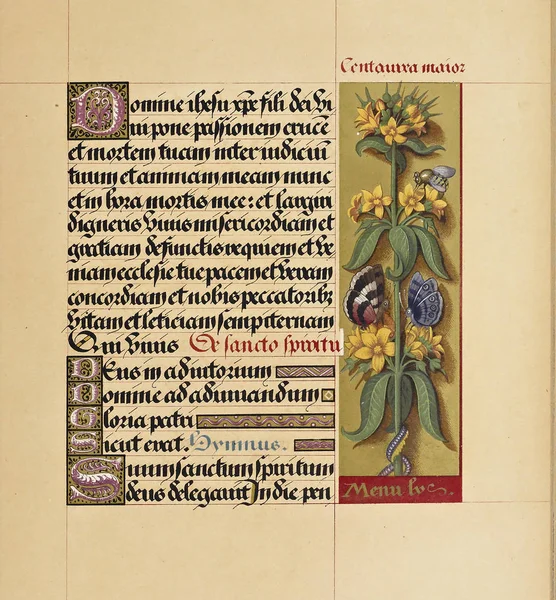 Centaurea maior
Domine ihesu xpe fili dei vi
ui pone passionem crucē
et mortem tuam inter iudiciū
tuum et animam meam nunc
et in hora mortis mee: et largiri
digneris viuis misericordiam et
gratiam defunctis requiem et ve
niam ecclesie tue pacem et veram
concordiam et nobis peccatoribz
vitam et leticiam sempiternam
Qui viuis De sancto spiritu
Deus in adiutorium
Domine ad adiuuandum
Gloria patri
Sicut erat. Hymnus.
Suum sanctum spiritum
deus delegauit In die pen
Menu